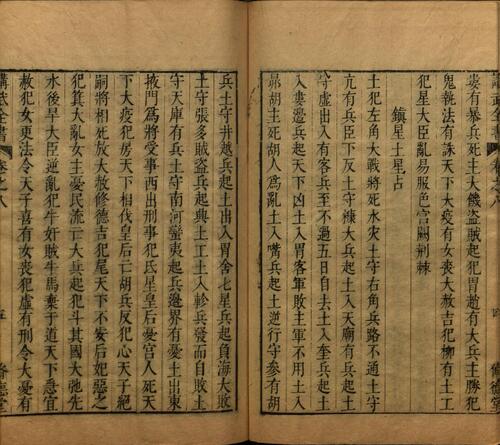 婁有暴兵死土大饑盜賊起犯胃趙有大兵土勝犯
鬼執法有誅天下大疫有女喪大赦吉犯柳有土工
犯星大臣亂易服色宮闕荆棘
鎮星土星占
土犯左角大戰將死水灾土守右角兵路不通土守
亢有兵臣下反土守㡳大兵起土入天廟有兵起土
守虛出入有客兵至不過五日自去土入奎兵起土
入婁邊兵起天下凶土入胃客軍敗主軍不用土入
昴胡主死胡人爲亂土入嘴兵起土逆行守參有胡
兵土守井越兵起土出入胃舍七星兵起負海大敗
土守張多賊盜兵起典土工土入軫兵發而自敗土
守天庫有兵土守南河蠻夷起兵邊界有憂土出東
掖門爲將受事西出刑事犯氐星皇后憂宮人死天
下大疫犯房天下相伐皇后亡胡兵反犯心天子絕
嗣將相死放大赦修德吉犯尾天下不安后妃惡之
犯箕大亂女主憂民流亡大兵起犯斗其國大弛先
水後旱大臣逆亂犯牛奸賊牛馬棄于道天下急宜
赦犯女更法令天子喜有女喪犯虛有刑令大憂有
講武全書
卷之八